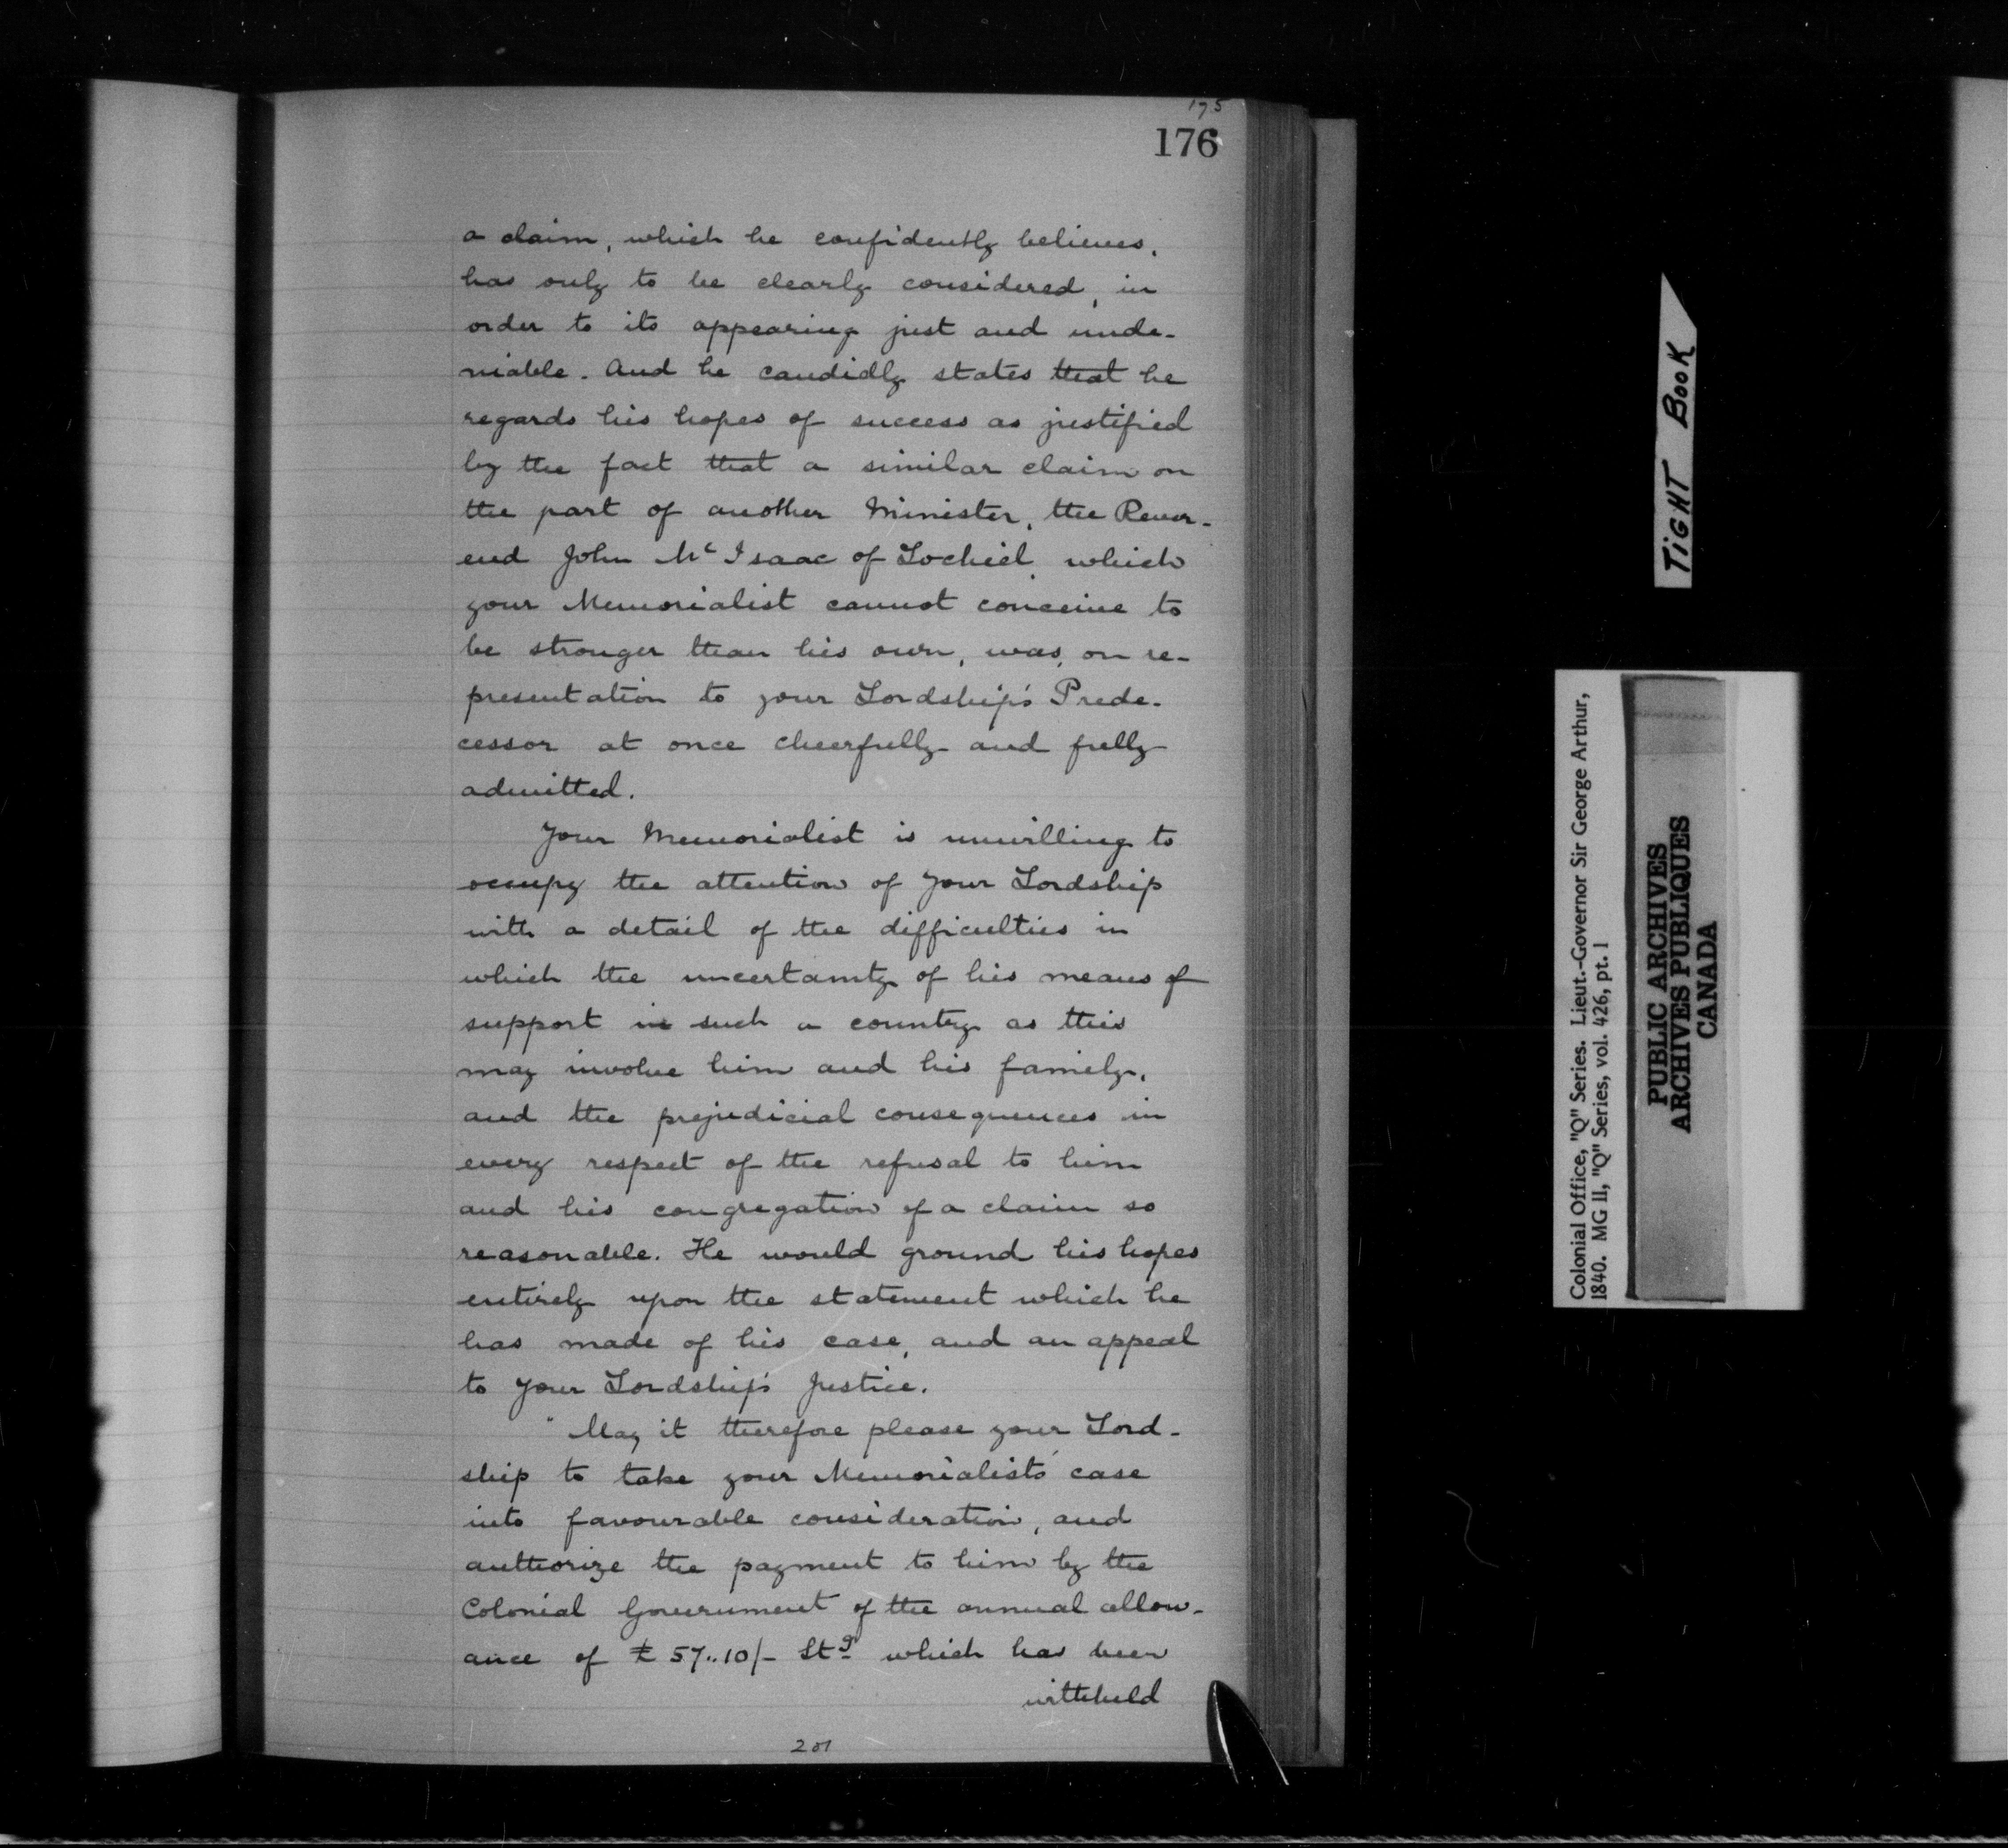 175
176
a claim, which he confidently believes,
has only to be clearly considered, in
order to its appearing just and unde-
niable. And he candidly states that he
regards his hopes of success as justified
by the fact that a similar claim on
the part of another Minister, the Rever-
end John Mc Isaac of Lochiel, which
your Memorialist cannot conceive to
be stronger than his own, was, on re-
presentation to your Lordship's Prede-
cessor at once cheerfully and fully
admitted.
Your Memorialist is unwilling to
occupy the attention of your Lordship
with a detail of the difficulties in
which the uncertainty of his means of
support in such a country as this
may involve him and his family,
and the prejudicial consequences in
every respect of the refusal to him
and his congregation of a claim so
reasonable. He would ground his hopes
entirely upon the statement which he
has made of his case, and an appeal
to your Lordship's Justice.
" May it therefore please your Lord-
ship to take your Memorialist's case
into favourable consideration, and
authorize the payment to him by the
Colonial Government of the annual allow-
ance of £57..10/- Stg which has been
withheld
201
TIGHT BOOK
Colonial Office, "Q" Series. Lieut.-Governor Sir George Arthur,
1840. MG 11, "Q" Series, vol. 426, pt. 1
PUBLIC ARCHIVES
ARCHIVES PUBLIQUES
CANADA